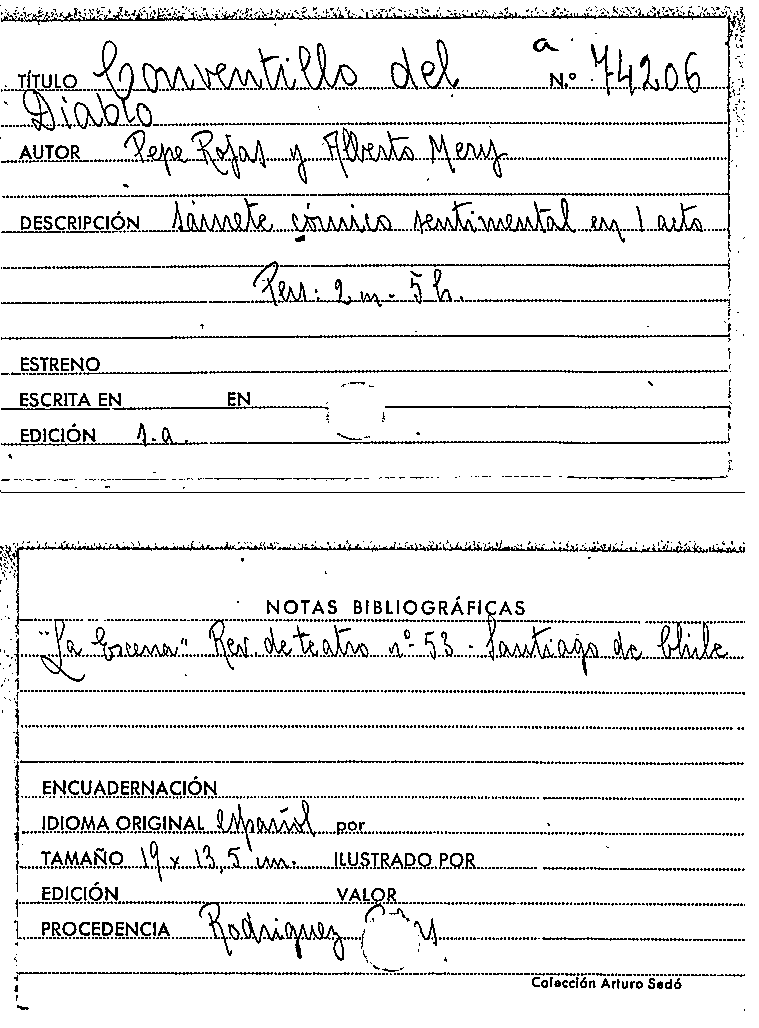 a
TÍTULO Conventillo del N.º 74206
Diablo
AUTOR Pepe Rojas y Alberto Mery
DESCRIPCIÓN sainete cómico sentimental en 1 acto
Pers: 2 m. 5 h.
ESTRENO
ESCRITA EN EN
EDICIÓN s.a.
NOTAS BIBLIOGRÁFICAS
"La Escena" Rev. de teatro nº 53 - Santiago de Chile
ENCUADERNACIÓN
IDIOMA ORIGINAL español por
TAMAÑO 19 x 13,5 cm. ILUSTRADO POR
EDICIÓN VALOR
PROCEDENCIA Rodriguez
Colección Arturo Sedó